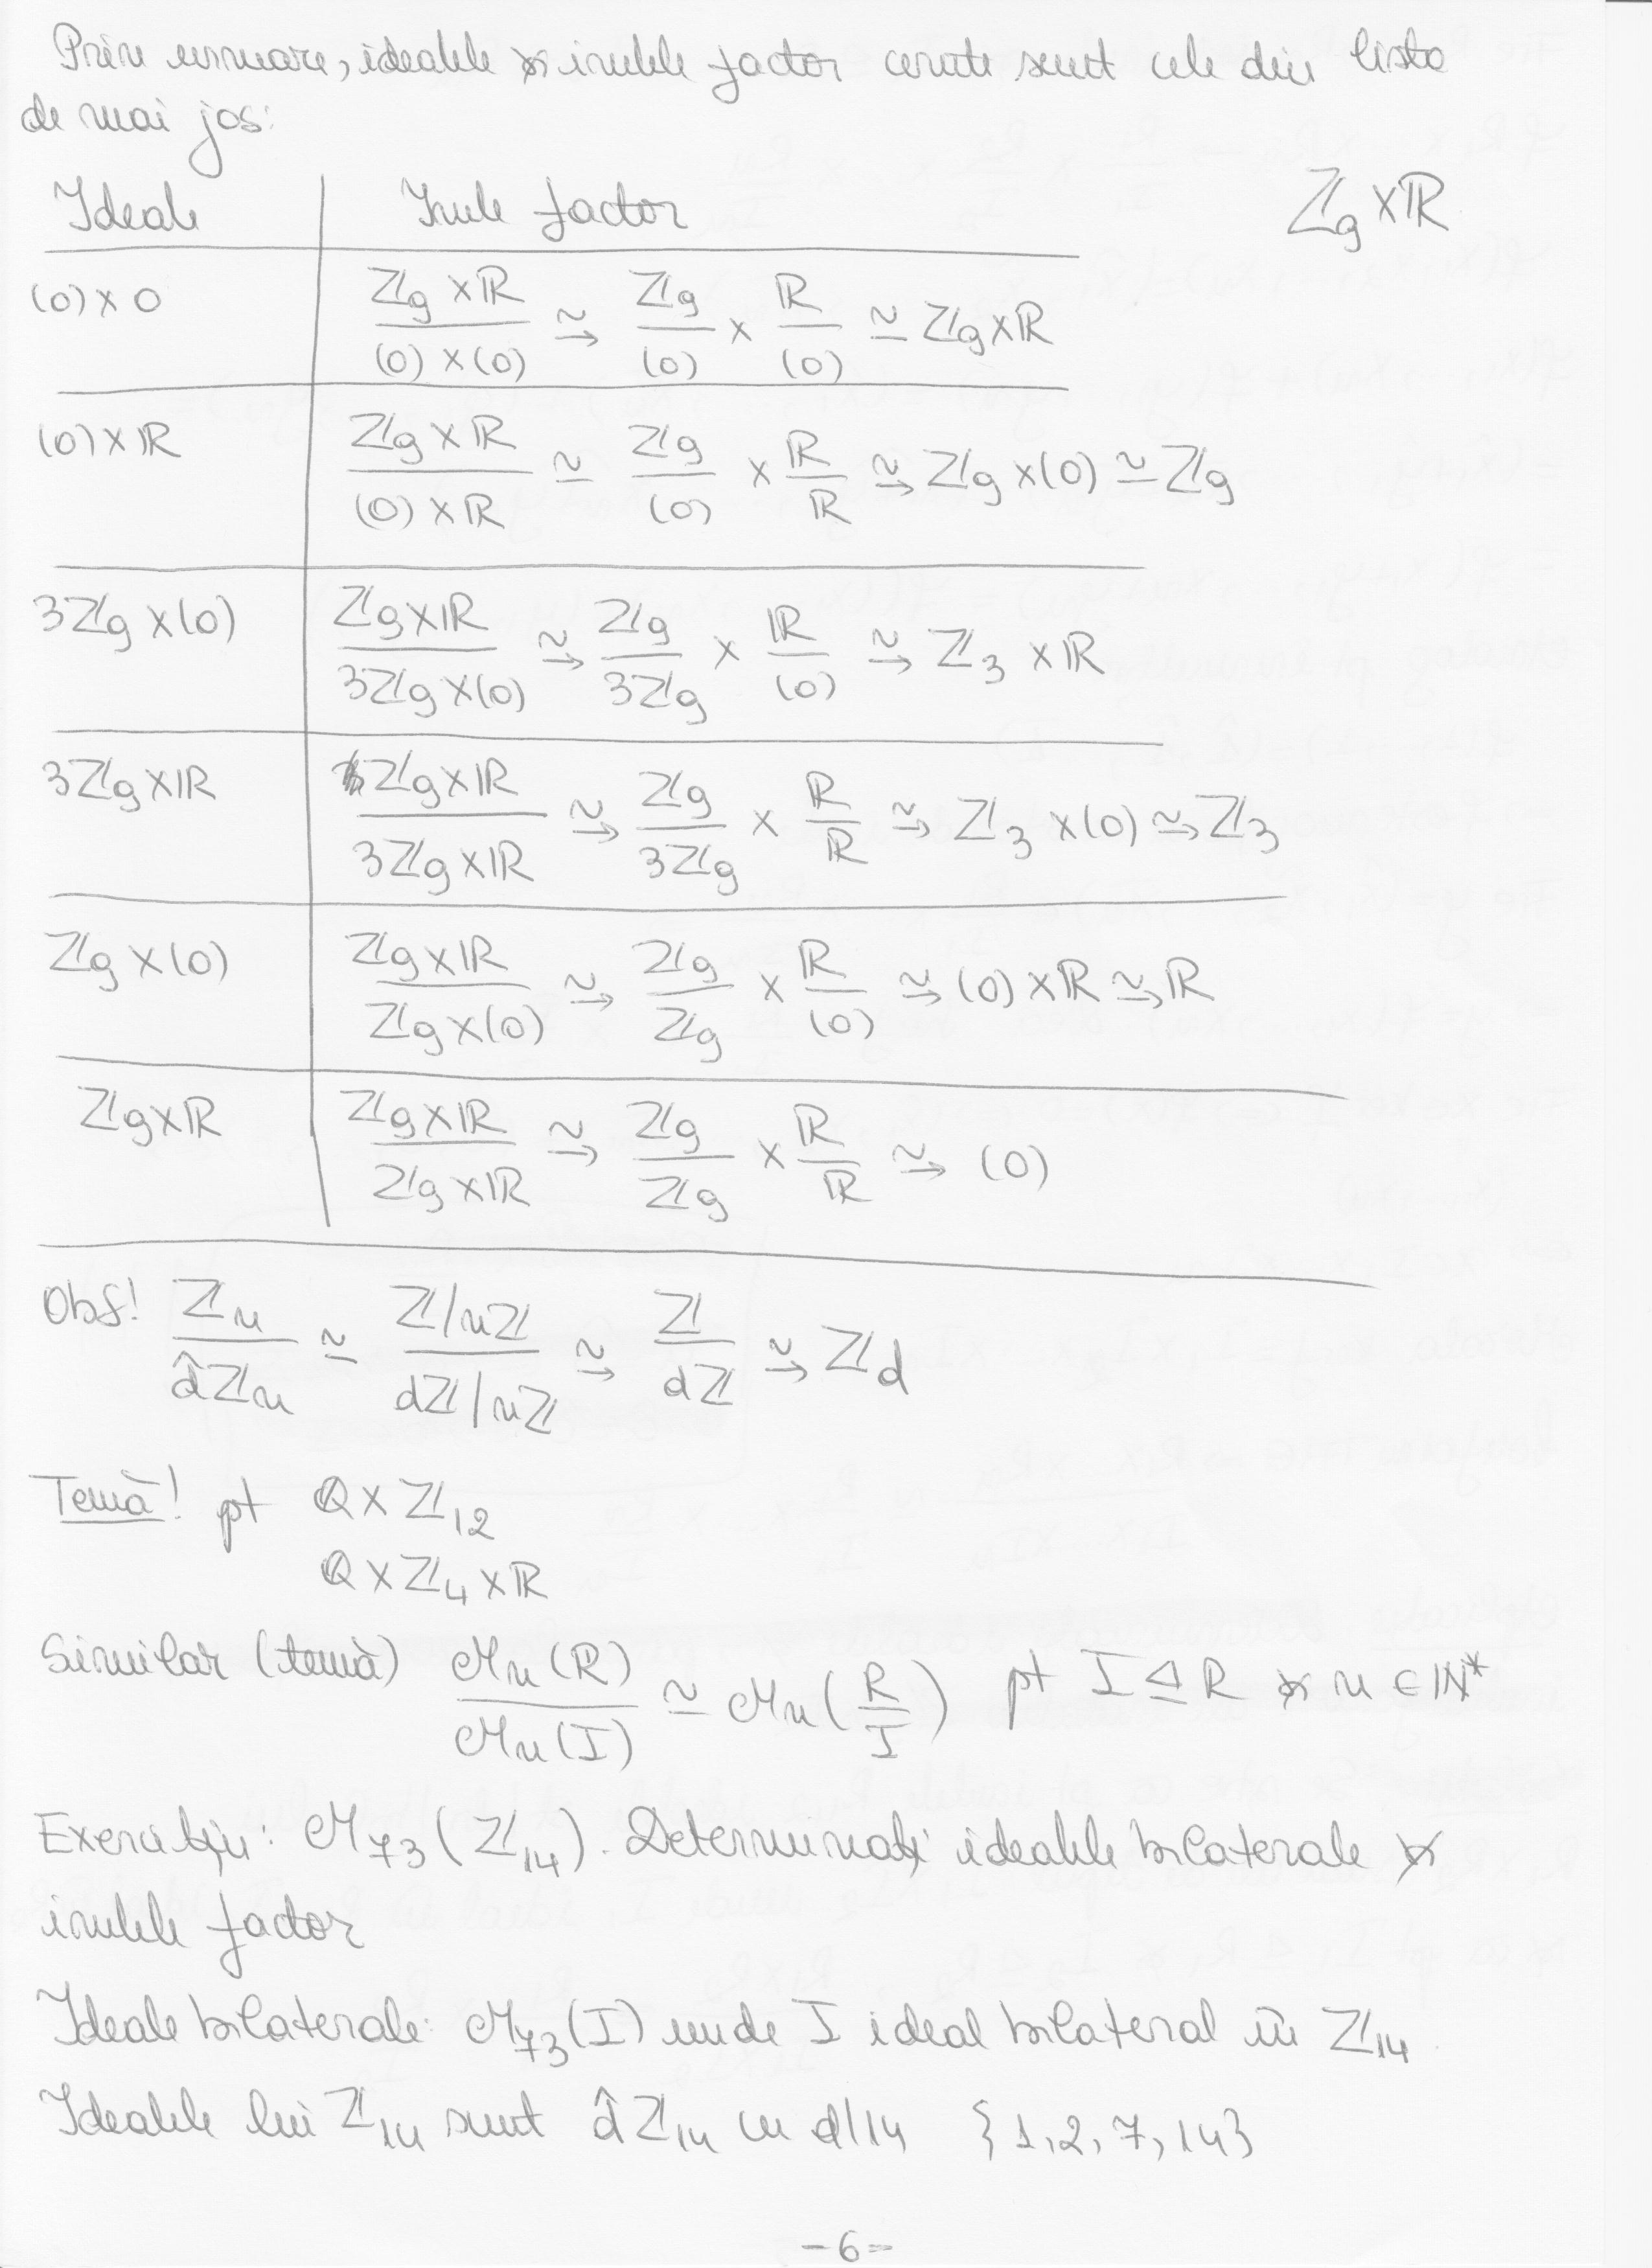 Prin urmare, idealele și inelele factor cerute sunt cele din lista
de mai jos:
Z₉ × R
Ideale | Inele factor
(0) × 0 | (Z₉ × R)/((0) × (0)) ≃ Z₉/(0) × R/(0) ≃ Z₉ × R
(0) × R | (Z₉ × R)/((0) × R) ≃ Z₉/(0) × R/R ≃ Z₉ × (0) ≃ Z₉
3Z₉ × (0) | (Z₉ × R)/(3Z₉ × (0)) ≃ Z₉/3Z₉ × R/(0) ≃ Z₃ × R
3Z₉ × R | (Z₉ × R)/(3Z₉ × R) ≃ Z₉/3Z₉ × R/R ≃ Z₃ × (0) ≃ Z₃
Z₉ × (0) | (Z₉ × R)/(Z₉ × (0)) ≃ Z₉/Z₉ × R/(0) ≃ (0) × R ≃ R
Z₉ × R | (Z₉ × R)/(Z₉ × R) ≃ Z₉/Z₉ × R/R ≃ (0)
Obs! Zₙ/d̂Zₙ ≃ (Z/nZ)/(dZ/nZ) ≃ Z/dZ ≃ Z_d
Temă! pt Q × Z₁₂
Q × Z₄ × R
Similar (temă) Mₙ(R)/Mₙ(I) ≃ Mₙ(R/I) pt I ⊴ R și n ∈ N*
Exercițiu: M₇₃(Z₁₄). Determinați idealele bilaterale și
inelele factor
Ideale bilaterale: M₇₃(I) unde I ideal bilateral în Z₁₄.
Idealele lui Z₁₄ sunt d̂Z₁₄ cu d|14 {1, 2, 7, 14}
-6-